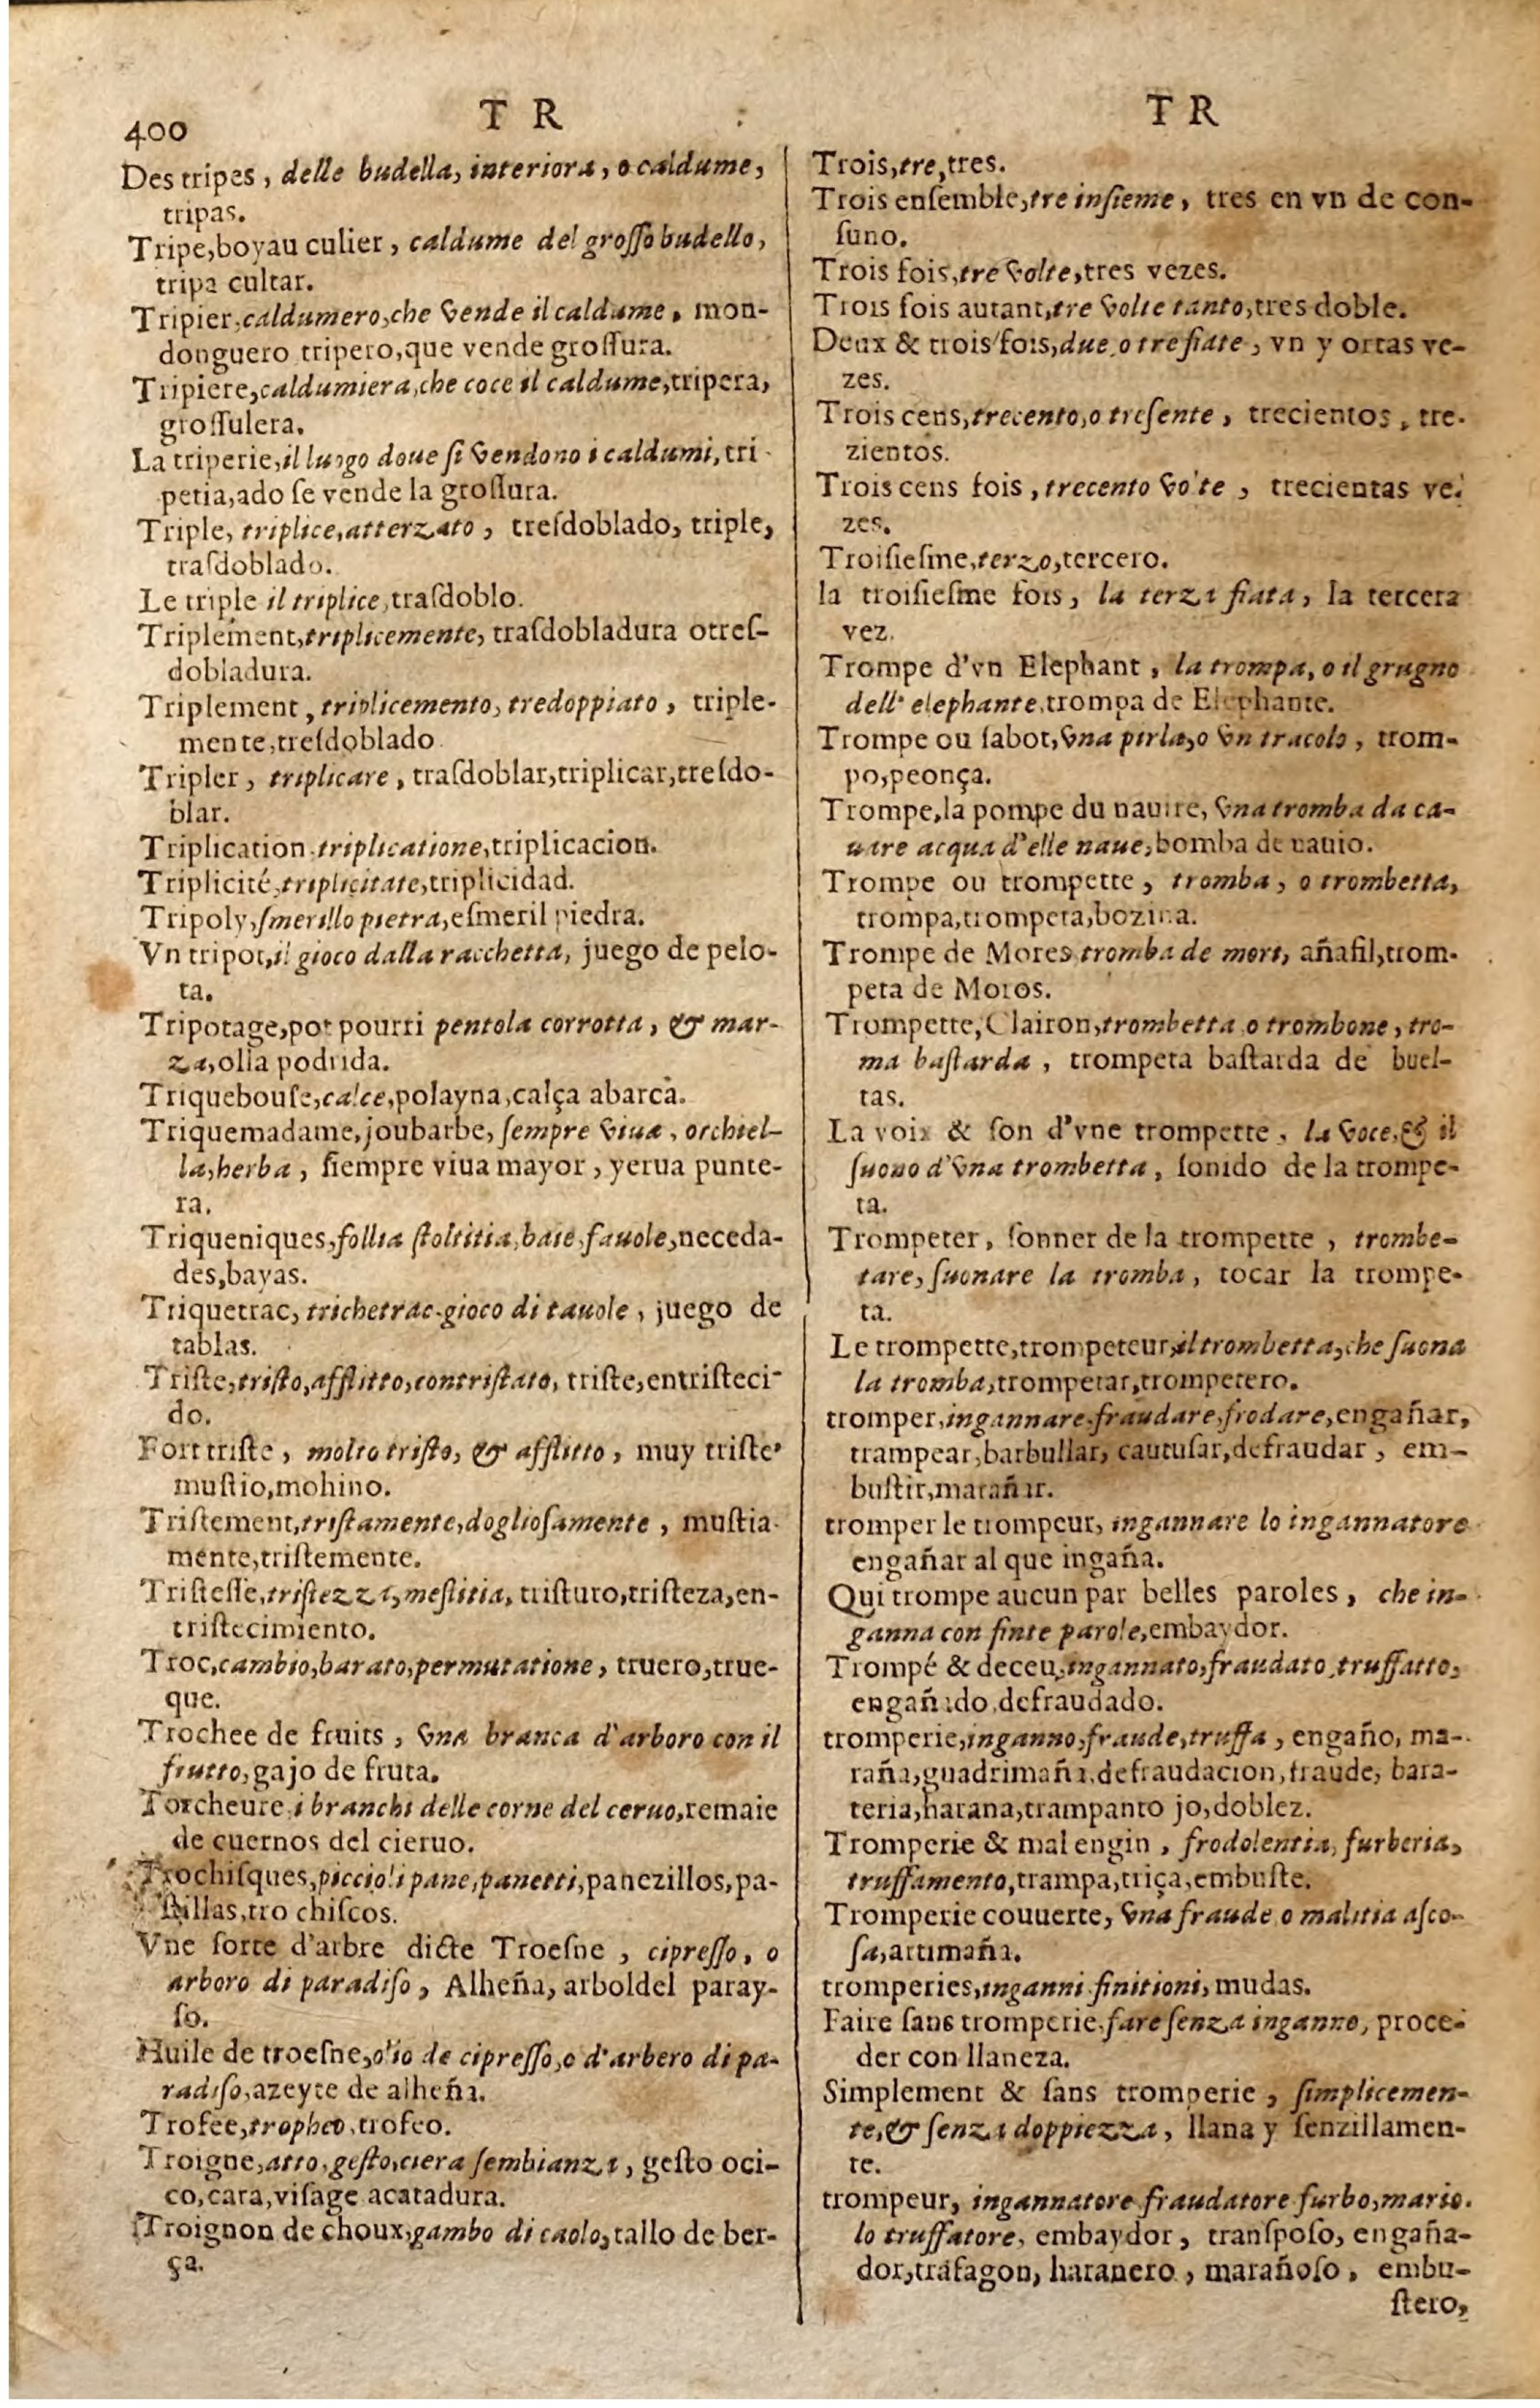 400
T R
Des tripes, delle budella, interiora, o caldume,
tripas.
Tripe,boyau culier, caldume del groſſo budello,
tripa cultar.
Tripier,caldumero,che vende il caldume, mon-
donguero tripero,que vende groſſura.
Tripiere,caldumiera,che coce il caldume,tripera,
groſſulera.
La triperie,il luogo doue ſi vendono i caldumi, tri-
petia,ado ſe vende la groſſura.
Triple, triplice,atterzato, treſdoblado, triple,
traſdoblado.
Le triple il triplice,traſdoblo.
Triplement,triplicemente, traſdobladura otreſ-
dobladura.
Triplement, triplicemento, tredoppiato, triple-
mente,treſdoblado
Tripler, triplicare, traſdoblar,triplicar,treſdo-
blar.
Triplication,triplicatione,triplicacion.
Triplicité,triplicitate,triplicidad.
Tripoly,ſmerillo pietra,eſmeril piedra.
Vn tripot,il gioco dalla racchetta, juego de pelo-
ta.
Tripotage,pot pourri pentola corrotta, & mar-
za,olla podrida.
Triquebouſe,calce,polayna,calça abarca.
Triquemadame,joubarbe, ſempre viua, orchiel-
la,herba, ſiempre viua mayor, yerua punte-
ra.
Triqueniques,follia ſtoltitia,baie,fauole,neceda-
des,bayas.
Triquetrac, trichetrac-gioco di tauole, juego de
tablas.
Triſte,triſto,afflitto,contriſtato, triſte,entriſteci-
do.
Fort triſte, molto triſto, & afflitto, muy triſte,
muſtio,mohino.
Triſtement,triſtamente,doglioſamente, muſtia-
mente,triſtemente.
Triſteſſe,triſtezza,meſtitia, triſturo,triſteza,en-
triſtecimiento.
Troc,cambio,barato,permutatione, truero,true-
que.
Trochee de fruits, vna branca d'arboro con il
frutto,gajo de fruta.
Torcheure i branchi delle corne del ceruo,remaie
de cuernos del cieruo.
Trochiſques,piccioli pane,panetti,panezillos,pa-
ſtillas,tro chiſcos.
Vne ſorte d'arbre dicte Troeſne, cipreſſo, o
arboro di paradiſo, Alheña, arboldel paray-
ſo.
Huile de troeſne,olio de cipreſſo,o d'arbero di pa-
radiſo,azeyte de alheña.
Trofee,tropheo,trofeo.
Troigne,atto,geſto,ciera ſembianza, geſto oci-
co,cara,viſage acatadura.
Troignon de choux,gambo di caolo,tallo de ber-
ça.
T R
Trois,tre,tres.
Trois enſemble,tre inſieme, tres en vn de con-
ſuno.
Trois fois,tre volte,tres vezes.
Trois fois autant,tre volte tanto,tres doble.
Deux & trois fois,due,o tre fiate, vn y ottas ve-
zes.
Trois cens,trecento,o treſente, trecientos, tre-
zientos.
Trois cens fois, trecento volte, trecientas ve-
zes.
Troiſieſme,terzo,tercero.
la troiſieſme fois, la terza fiata, la tercera
vez.
Trompe d'vn Elephant, la trompa, o il grugno
dell' elephante,trompa de Elephante.
Trompe ou ſabot,vna pirla,o vn tracolo, trom-
po,peonça.
Trompe,la pompe du nauire, vna tromba da ca-
uare acqua d'elle naue,bomba de nauio.
Trompe ou trompette, tromba, o trombetta,
trompa,trompeta,bozina.
Trompe de Mores tromba de mori, añafil,trom-
peta de Moros.
Trompette,Clairon,trombetta o trombone, tro-
ma baſtarda, trompeta baſtarda de buel-
tas.
La voix & ſon d'vne trompette, la voce,& il
ſuono d'vna trombetta, ſonido de la trompe-
ta.
Trompeter, ſonner de la trompette, trombe-
tare, ſuonare la tromba, tocar la trompe-
ta.
Le trompette,trompeteur,il trombetta,che ſuona
la tromba,trompetar,trompetero.
tromper,ingannare,fraudare,frodare,engañar,
trampear,barbullar, cautuſar,defraudar, em-
buſtir,marañar.
tromper le trompeur, ingannare lo ingannatore
engañar al que ingaña.
Qui trompe aucun par belles paroles, che in-
ganna con finte parole,embaydor.
Trompé & deceu,ingannato,fraudato,truffatto,
engañado,defraudado.
tromperie,inganno,fraude,truffa, engaño, ma-
raña,guadrimaña,defraudacion,fraude, bara-
teria,harana,trampanto jo,doblez.
Tromperie & mal engin, frodolentia, furberia,
truffamento,trampa,triça,embuſte.
Tromperie couuerte, vna fraude o malitia aſco-
ſa,artimaña.
tromperies,inganni finitioni, mudas.
Faire ſans tromperie,fare ſenza inganno, proce-
der con llaneza.
Simplement & ſans tromperie, ſimplicemen-
te,& ſenza doppiezza, llana y ſenzillamen-
te.
trompeur, ingannatore fraudatore furbo,mario-
lo truffatore, embaydor, tranſpoſo, engaña-
dor,trafagon, haranero, marañoſo, embu-
ſtero,